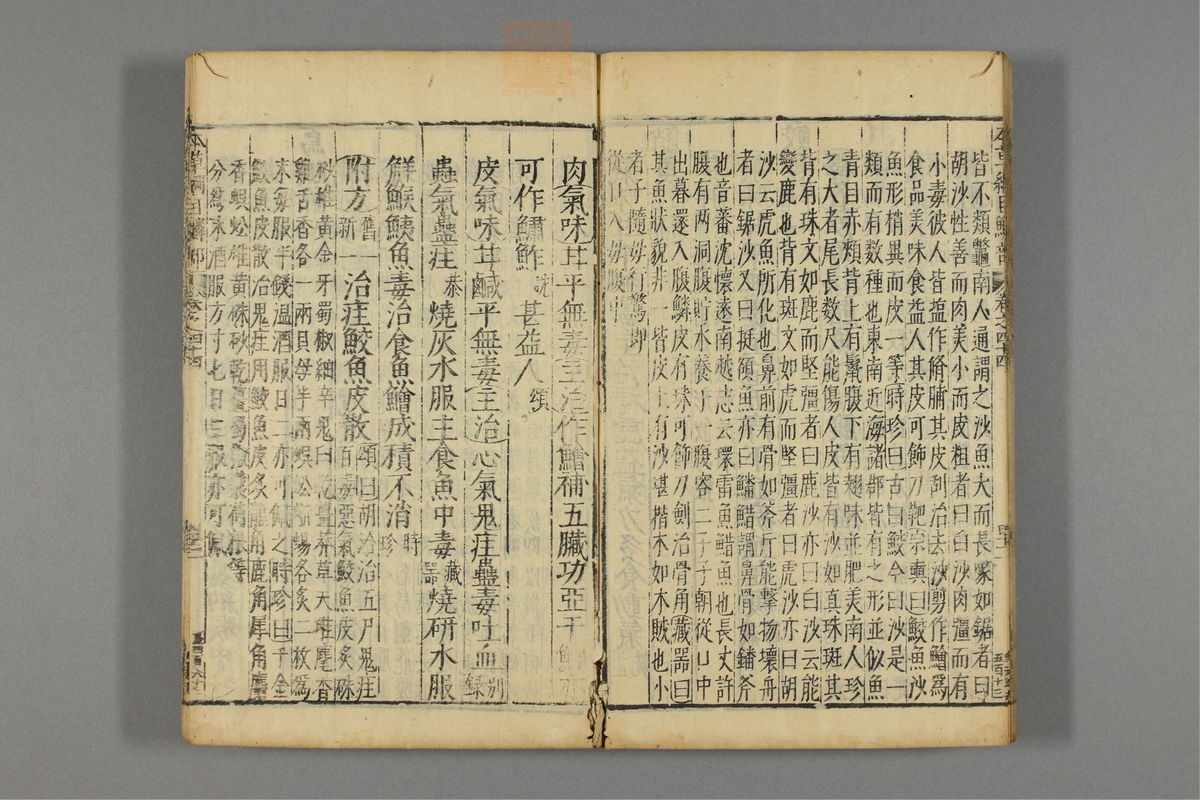 皆不類鼈南人通謂之沙魚大而長喙如鋸者曰
胡沙性善而肉美小而皮粗者曰白沙肉彊而有
小毒彼人皆塩作脩脯其皮刮治去沙剪作鱠為
食品美味食益人其皮可飾刀靶宗奭曰鮫魚沙
魚形稍異而皮一等時珍曰古曰鮫今曰沙是一
類而有数種也東南近海諸郡皆有之形並似魚
青目赤頰背上有鬣腹下有翅味並肥美南人珍
之大者尾長数尺能傷人皮皆有沙如真珠斑其
背有珠文如鹿而堅彊者曰鹿沙亦曰白沙云能
變鹿也背有斑文如虎而堅彊者曰虎沙亦曰胡
沙云虎魚所化也鼻前有骨如斧斤能擊物壞舟
者曰鋸沙又曰挺額魚亦曰鱕䱜謂鼻骨如鐇斧
也音蕃沈懷遠南越志云環雷魚䱜魚也長丈許
腹有两洞腹貯水養子一腹容二子子朝從口中
出暮還入腹鱗皮有珠可飾刀劍治骨角藏器曰
其魚狀貌非一皆皮上有沙堪揩木如木賊也小
者子隨母行驚即
從口入母腹中
肉氣味甘平無毒主治作鱠補五臟功亞于鯽
可作鱐鮓詵甚益人頌
皮氣味甘鹹平無毒主治心氣鬼疰蠱毒吐血别錄
蟲氣蠱疰恭燒灰水服主食魚中毒藏器燒研水服
解鯸鮧魚毒治食魚鱠成積不消時珍
附方舊一新一治疰鮫魚皮散頌曰胡洽治五尸鬼疰
百毒惡氣鮫魚皮炙硃
砂雄黃金牙蜀椒細辛鬼臼乾薑莽草天雄麝香
雞舌香各一兩貝母半兩蜈蚣蜥蜴各炙二枚為
末每服半錢温酒服日二亦可佩之時珍曰千金
鮫魚皮散治鬼疰用鮫魚皮炙龍角鹿角犀角麝
香蜈蚣雄黃硃砂乾薑蜀椒蘘荷根丁香等
分為末酒服方寸匕日三服亦可佩